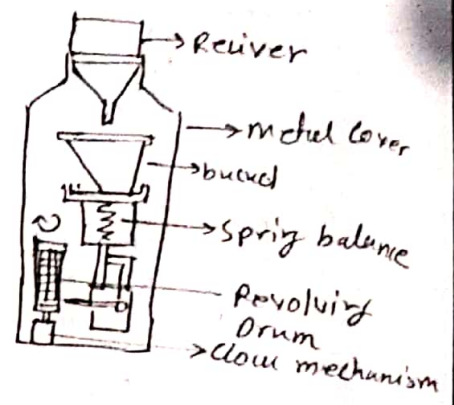 Reciver
metal Cover
bucket
Spring balance
Revolving
Drum
Clock mechanism